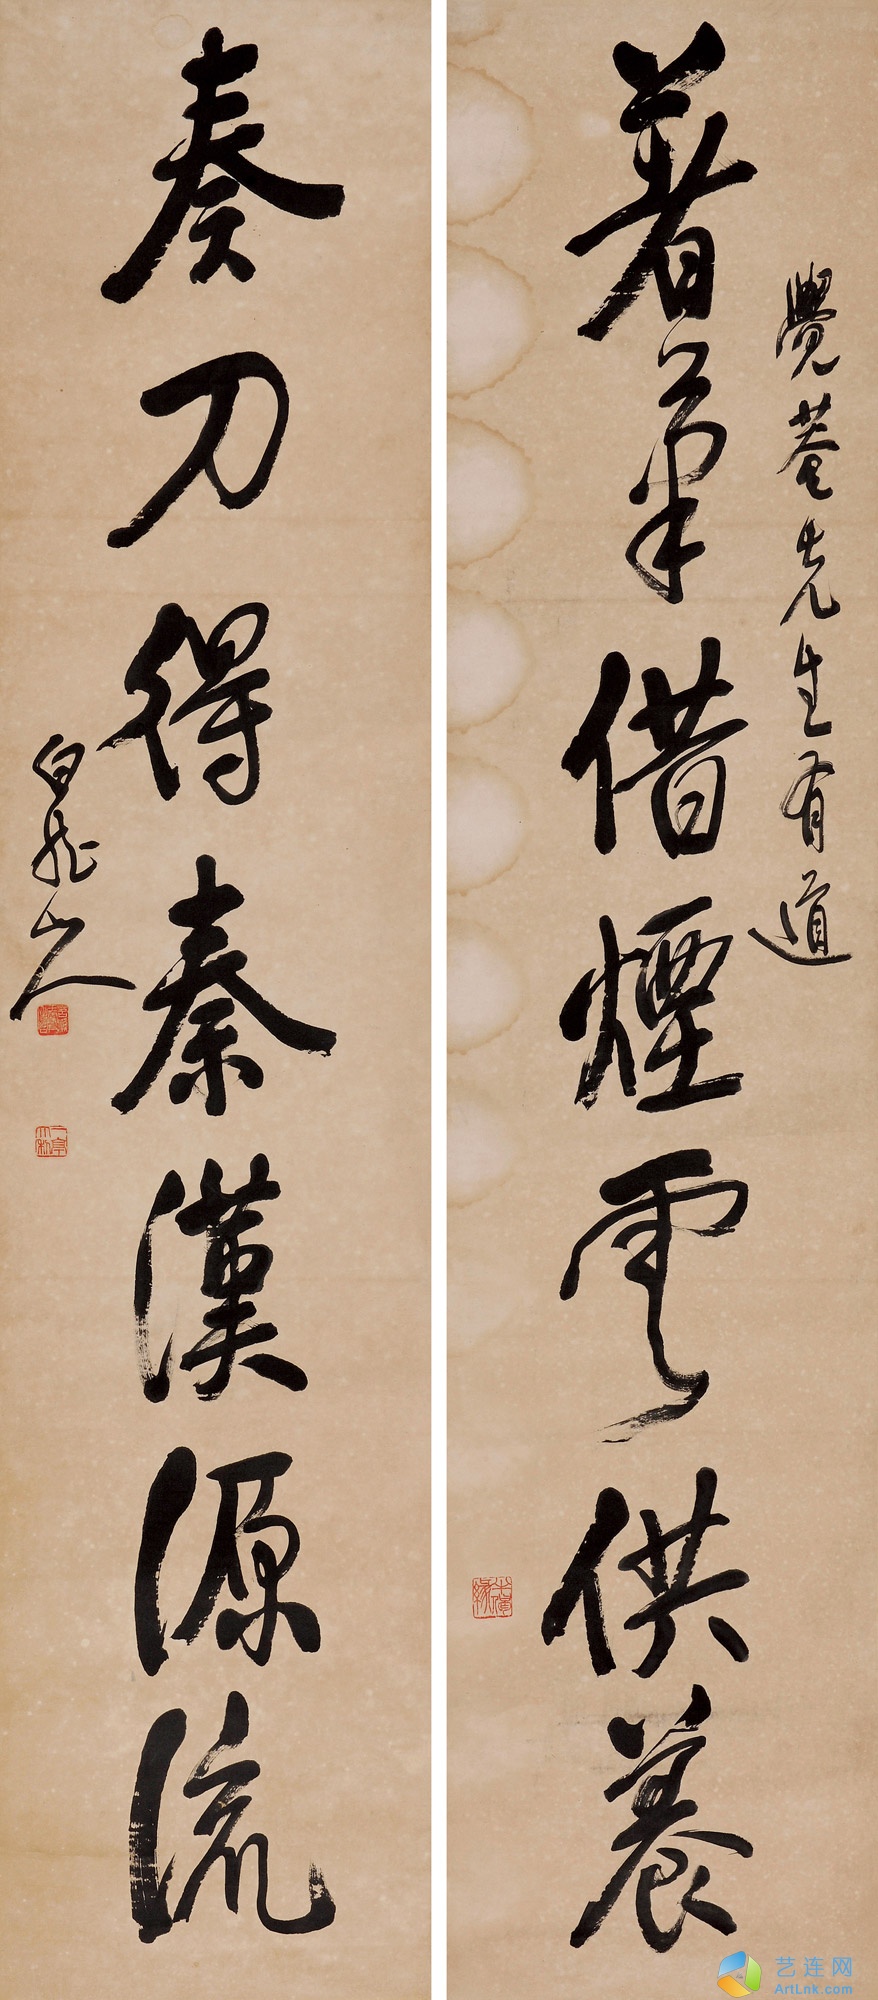 覺菴先生有道
著筆借煙雲供養
奏刀得秦漢源流
白龍山人
艺连网
ArtLnk.com